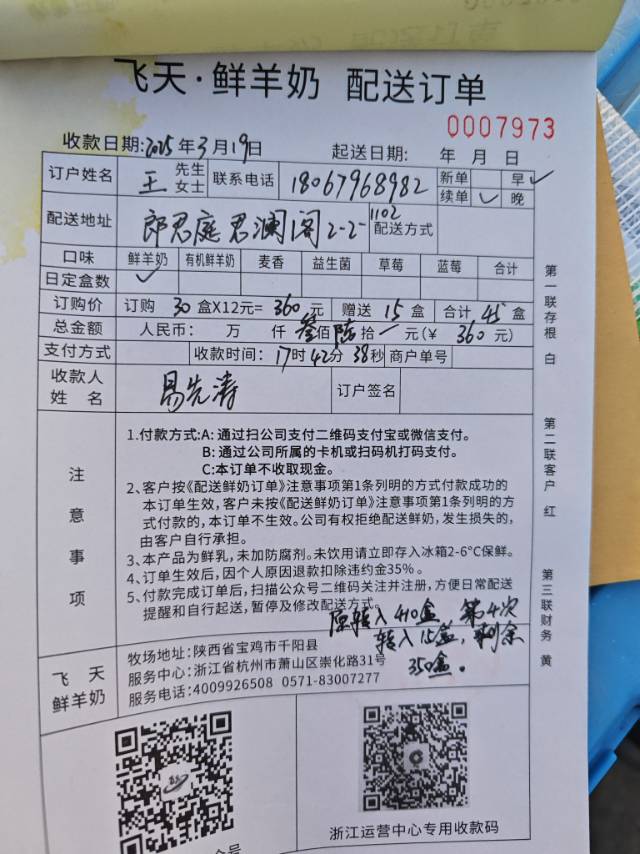 飞天·鲜羊奶 配送订单
0007973
收款日期:2025年3月19日 起送日期: 年 月 日
订户姓名 王 先生 女士 联系电话 18067968982 新单 早✓
续单 ✓ 晚
配送地址 郎君庭君澜阁2-2-1102 配送方式
口味 鲜羊奶 有机鲜羊奶 麦香 益生菌 草莓 蓝莓 合计
日定盒数 ✓
订购价 订购 30 盒X12元= 360 元 赠送 15 盒 合计 45 盒
总金额 人民币: 万 仟 叁佰 陆拾 元(￥ 360 元)
支付方式 收款时间: 17时42分38秒 商户单号
收款人姓名 易先涛 订户签名
注意事项
1.付款方式:A: 通过扫公司支付二维码支付宝或微信支付。
B: 通过公司所属的卡机或扫码机打码支付。
C:本订单不收取现金。
2、客户按《配送鲜奶订单》注意事项第1条列明的方式付款成功的
本订单生效，客户未按《配送鲜奶订单》注意事项第1条列明的方
式付款的，本订单不生效。公司有权拒绝配送鲜奶，发生损失的，
由客户自行承担。
3、本产品为鲜乳，未加防腐剂。未饮用请立即存入冰箱2-6°C保鲜。
4、订单生效后，因个人原因退款扣除违约金35%。
5、付款完成订单后，扫描公众号二维码关注并注册，方便日常配送
提醒和自行起送，暂停及修改配送方式。
原转入410盒 第4次
转入15盒，剩余
350盒。
飞天
鲜羊奶
牧场地址:陕西省宝鸡市千阳县
服务中心:浙江省杭州市萧山区崇化路31号
服务电话:4009926508 0571-83007277
浙江运营中心专用收款码
第一联存根 白
第二联客户 红
第三联财务 黄